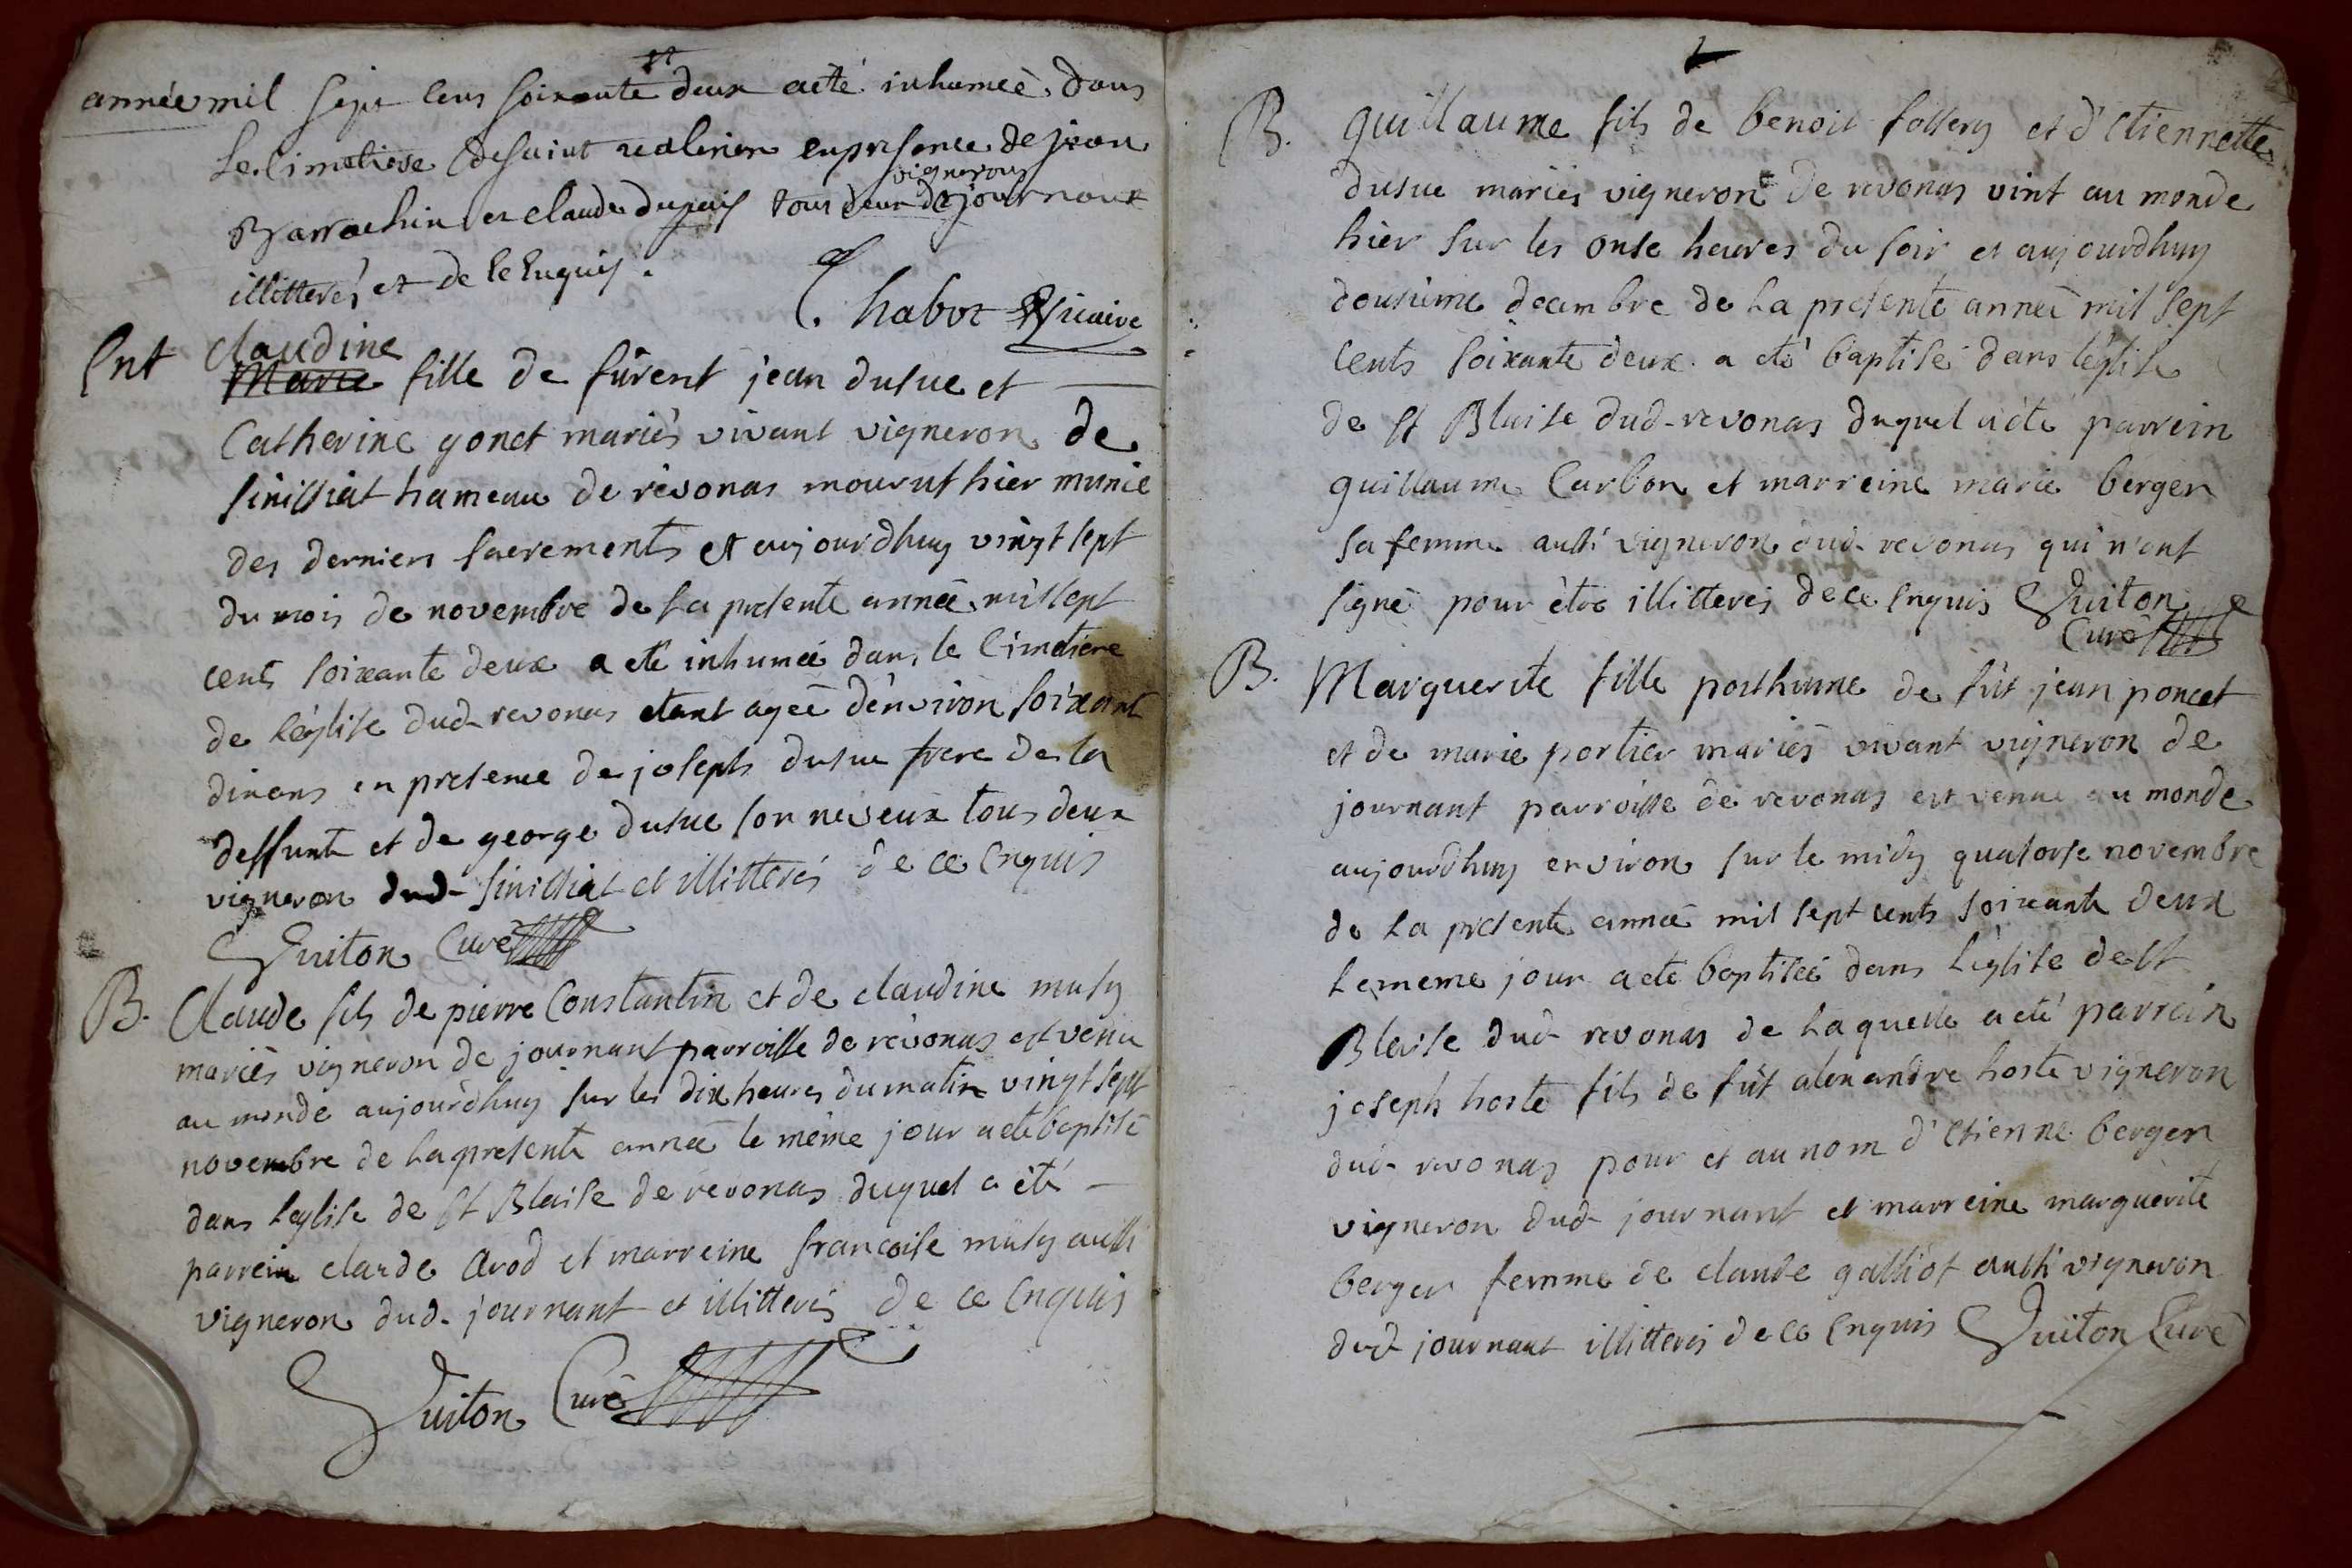 année mil sept cens soixante et deux a eté inhumeè dans
le cimetiere de saint valerien en presence de jean
vignerons
Barrachin et claude dupuis tous deux de journant
illitterés et de ce Enquis.
Chabot Vicaire
Ent claudine
Marie fille de fûrent jean dusue et
Catherine gonet mariés vivant vigneron de
sinissiat hameau de rèvonas mourut hier munie
des derniers sacrements et aujourdhuy vingt sept
du mois de novembre de la presente anneè mil sept
cents soixante deux a eté inhumeè dans le Cimetiere
de l'èglise dud revonas etant ageè d'environ soixante
dix ans en presence de joseph dusue frere de la
deffunte et de george dusue son neveux tous deux
vigneron dud sinissiat et illitterés de ce Enquis
Guiton Curé
B. Claude fils de pierre Constantin et de claudine musy
mariès vigneron de journant parroisse de rèvonas est venu
au monde aujourdhuy sur les dix heures du matin vingt sept
novembre de la presente anneè le même jour a eté baptisè
dans l'eglise de St Blaise de revonas duquel a èté
parrein claude Arod et marreine francoise musy aussi
vigneron dud. journant et illitterés de ce Enquis
Guiton Curè
B. guillaume fils de benoit follery et d'Etiennette
dusue mariés vigneron de revonas vint au monde
hier sur les onse heures du soir et aujourdhuy
dousieme decembre de la presente anneè mil sept
cents soixante deux a eté baptisé dans l'èglise
de St Blaise dud revonas duquel a été parrein
guillaume Curbon et marreine marie berger
sa femme aussi vigneron dud revonas qui n'ont
signè pour ètre illitterés de ce Enquis Guiton
Curé
B. Marguerite fille posthume de fût jean poncet
et de marie portier mariès vivant vigneron de
journant parroisse de revonas est venue au monde
aujourdhuy environ sur le midy quatorse novembre
de la presente anneè mil sept cents soixante deux
le meme jour a eté baptiseè dans l'èglise de St
Blaise dud revonas de laquelle a eté parrein
joseph hoste fils de fût alexandre hoste vigneron
dud revonas pour et au nom d'Etienne berger
vigneron dud journant et marreine marguèrite
berger femme de claude galliot aussi vigneron
dud journant illitterés de ce Enquis Guiton Curè